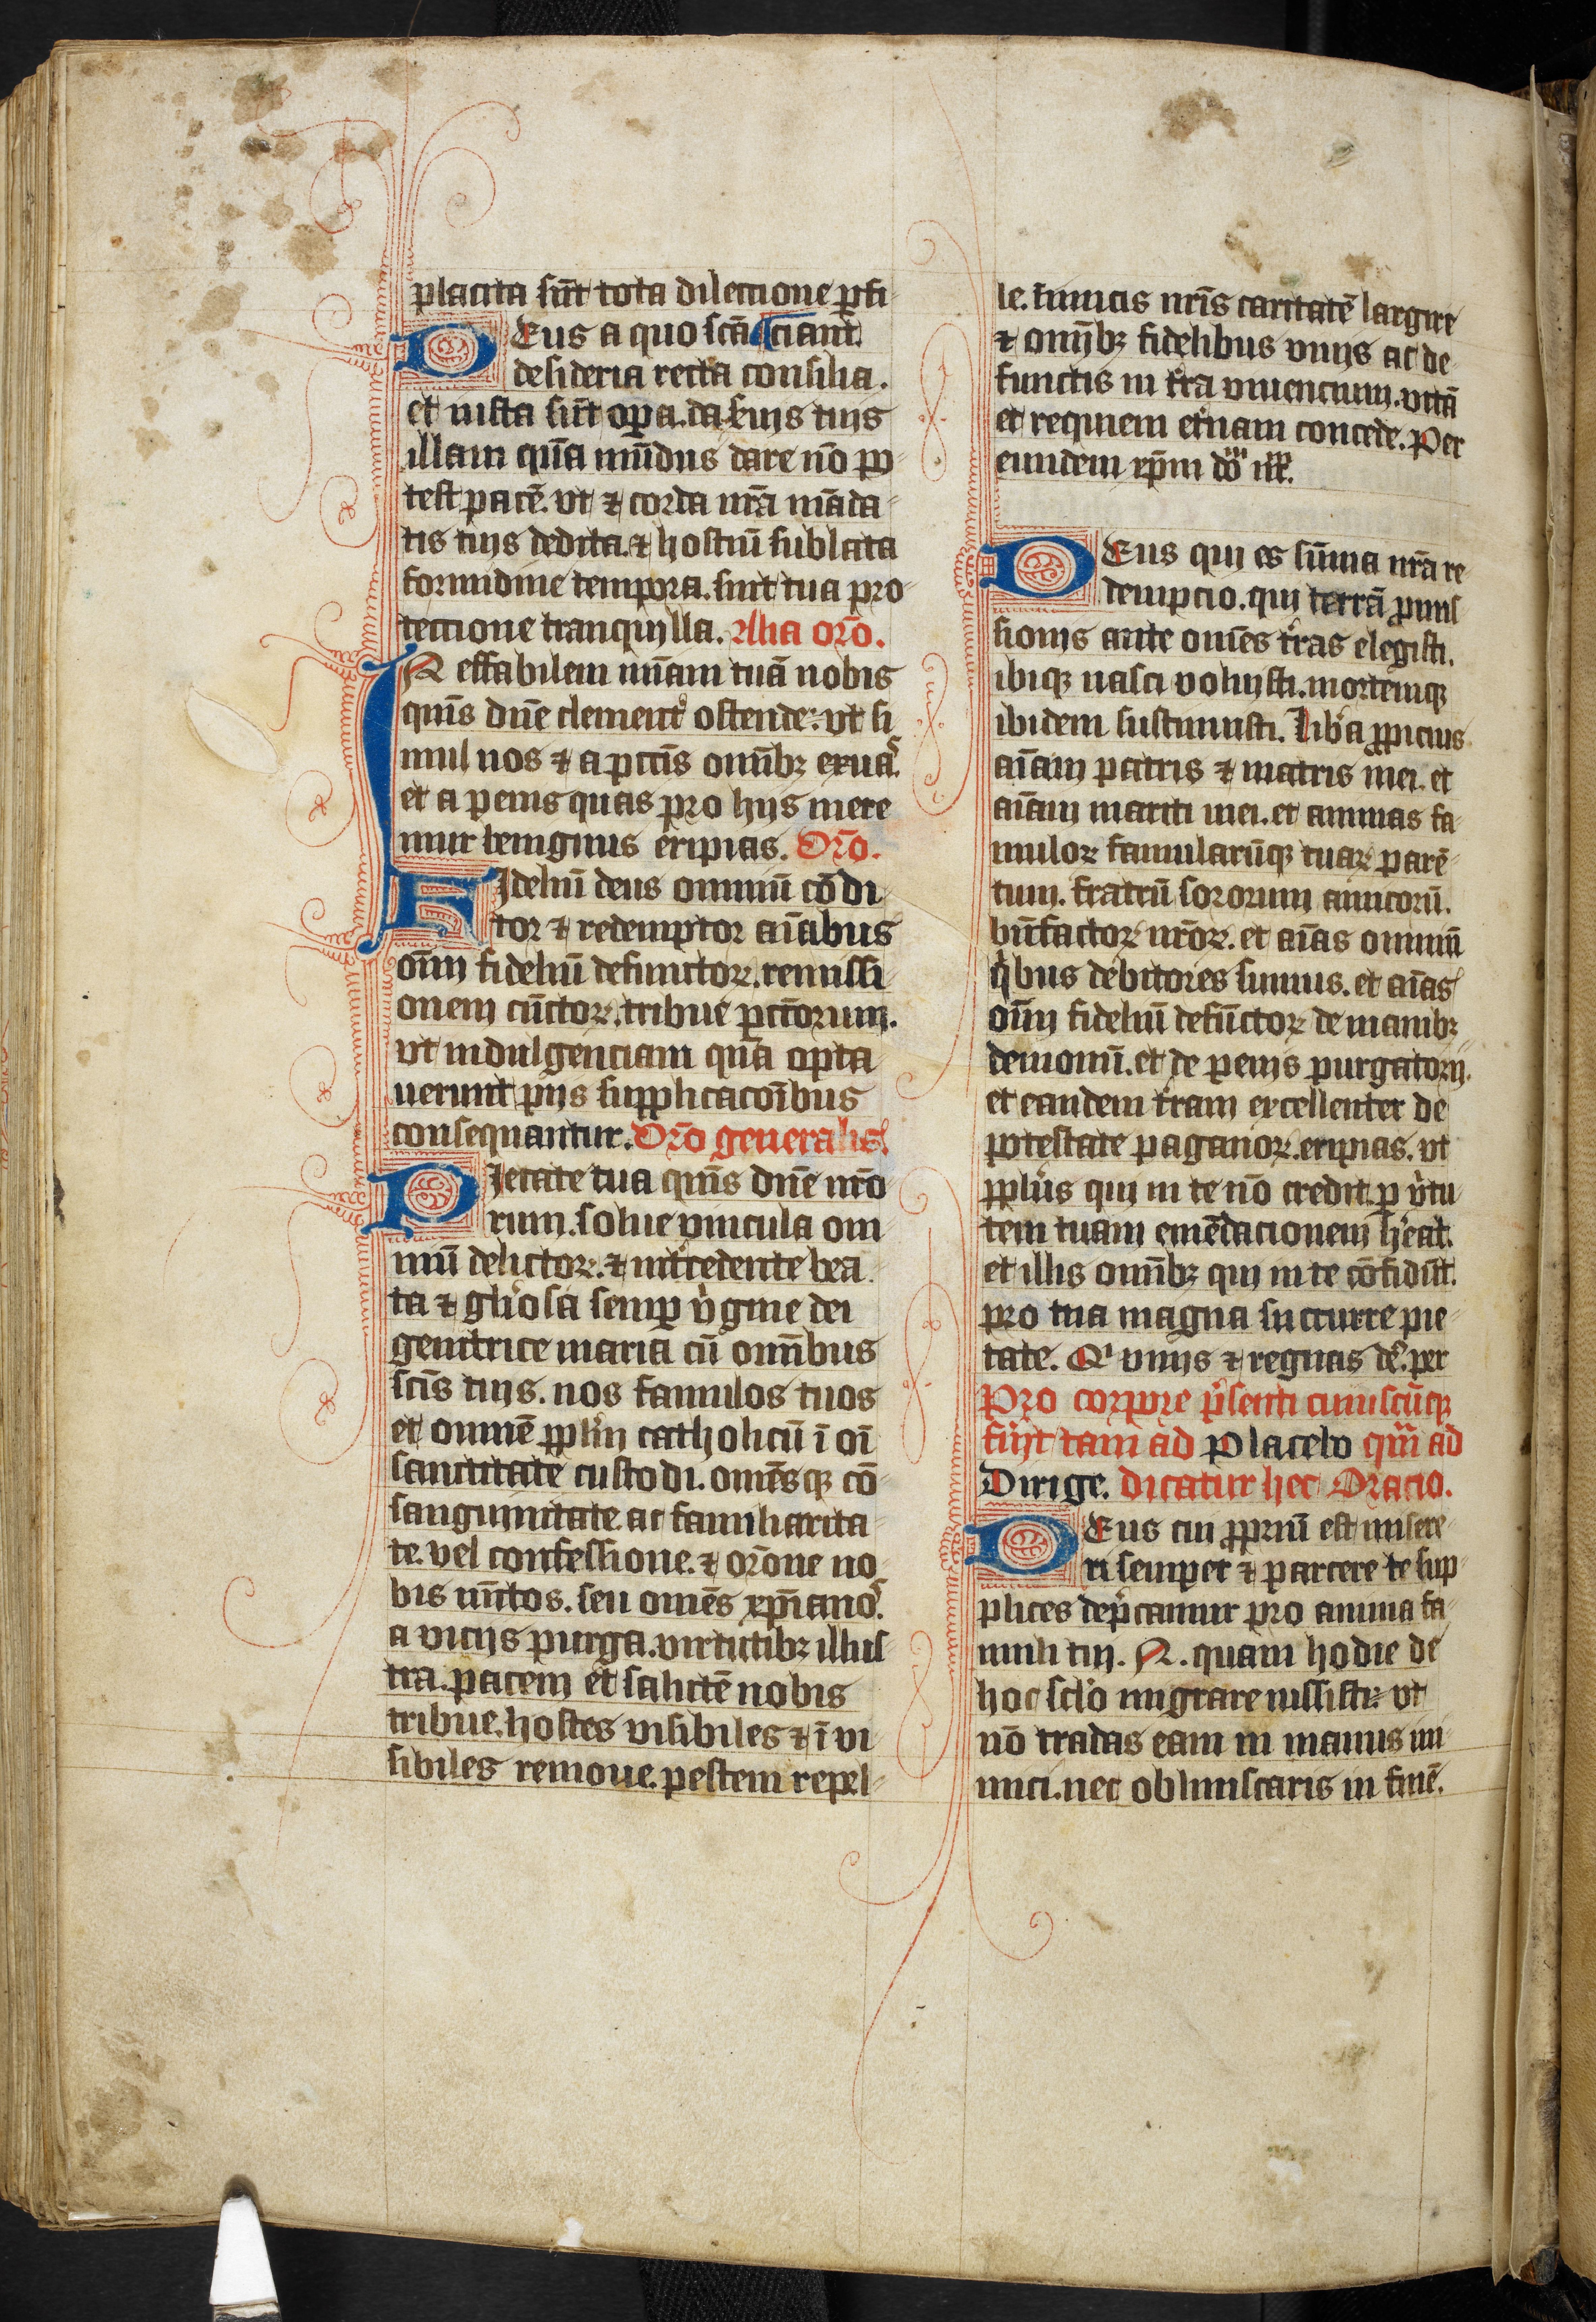 placita su̅t tota dilectione ꝑfi
DEus a quo sc̅a ciant
desideria recta consilia.
et iusta su̅t oꝑa. da ẜuis tuis
illam qua̅ mu̅dus dare no̅ po
test pace̅. vt ⁊ corda nr̅a ma̅da
tis tuis dedita. ⁊ hostiu̅ sublata
formidine tempora. sint tua pro
tectione tranquilla. Alia or̅o.
IN effabilem mi̅am tua̅ nobis
qui̅s dn̅e clement᷑ ostende: vt si
mul nos ⁊ a pcc̅is omi̅bꝫ exuaˢ
et a penis quas pro hijs mere
mur benignus eripias. Or̅o.
FIdeliu̅ deus omniu̅ co̅di
tor ⁊ redemptor ai̅abus
oi̅m fideliu̅ defunctoꝝ. remissi
onem cu̅ctoꝝ. tribue pcc̅torum.
vt indulgenciam qua̅ opta
uerunt pijs supplicacoi̅bus
consequantur. Or̅o generalis.
PIetate tua qui̅s dn̅e nr̅o
rum. solue vincula om
niu̅ delictoꝝ. ⁊ int᷑cedente bea
ta ⁊ gl̅iosa semꝑ v᷑gine dei
genitrice maria cu̅ omi̅bus
sc̅is tuis. nos famulos tuos
et omne̅ pplm̅ catholicu̅ i̅ oi̅
sanctitate custodi. ome̅sqꝫ co̅
sanguinitate. ac familiarita
te. vel confessione. ⁊ or̅one no
bis iu̅ctos. seu ome̅s xp̅ianoˢ.
a vicijs purga. virtutibꝫ illus
tra. pacem et salute̅ nobis
tribue. hostes visibiles ⁊ i̅ vi
sibiles remoue. pestem repel
le. Inimicis nr̅is caritate̅ largire
⁊ omi̅bꝫ fidelibus viuis ac de
functis in t᷑ra viuencium. vita̅
et requiem et᷑nam concede. Per
eundem xp̅m
DEus qui es su̅ma nr̅a re
dempcio. qui terra̅ promis
sionis ante ome̅s t᷑ras elegisti.
ibiqꝫ nasci voluisti. mortemqꝫ
ibidem sustinuisti. Lib᷑a ꝓpicius
ai̅am patris ⁊ matris mei. et
ai̅am mariti mei. et animas fa
muloꝝ famularu̅qꝫ tuaꝝ pare̅
tum. fratru̅ sororum amicoru̅.
bn̅factoꝝ nr̅oꝝ. et ai̅as omniu̅
qͥbus debitores sumus. et ai̅as
oi̅m fideliu̅ defu̅ctoꝝ de manibꝫ
demoniu̅. et de penis purgatorij.
et eandem t᷑ram excellenter de
potestate paganoꝝ. eripias. vt
ppl̅us qui in te no̅ credit. ꝑ v᷑tu
tem tuam eme̅dacionem h̅eat.
et illis omi̅bꝫ qui in te co̅fidu̅t.
pro tua magna succurre pie
tate. Qͥ viuis ⁊ regnas de᷑. per
Pro corpore pͥsenti cuiuscu̅qꝫ
fu᷑it tam ad Placebo qua̅ ad
Dirige. dicatur hec Oracio.
DEus cui ꝓpriu̅ est misere
ri semper ⁊ parcere te sup
plices dep᷑camur pro anima fa
muli tui. N. quam hodie de
hoc sc̅lo migrare iussisti: vt
no̅ tradas eam in manus ini
mici. nec obliuiscaris in fine̅.